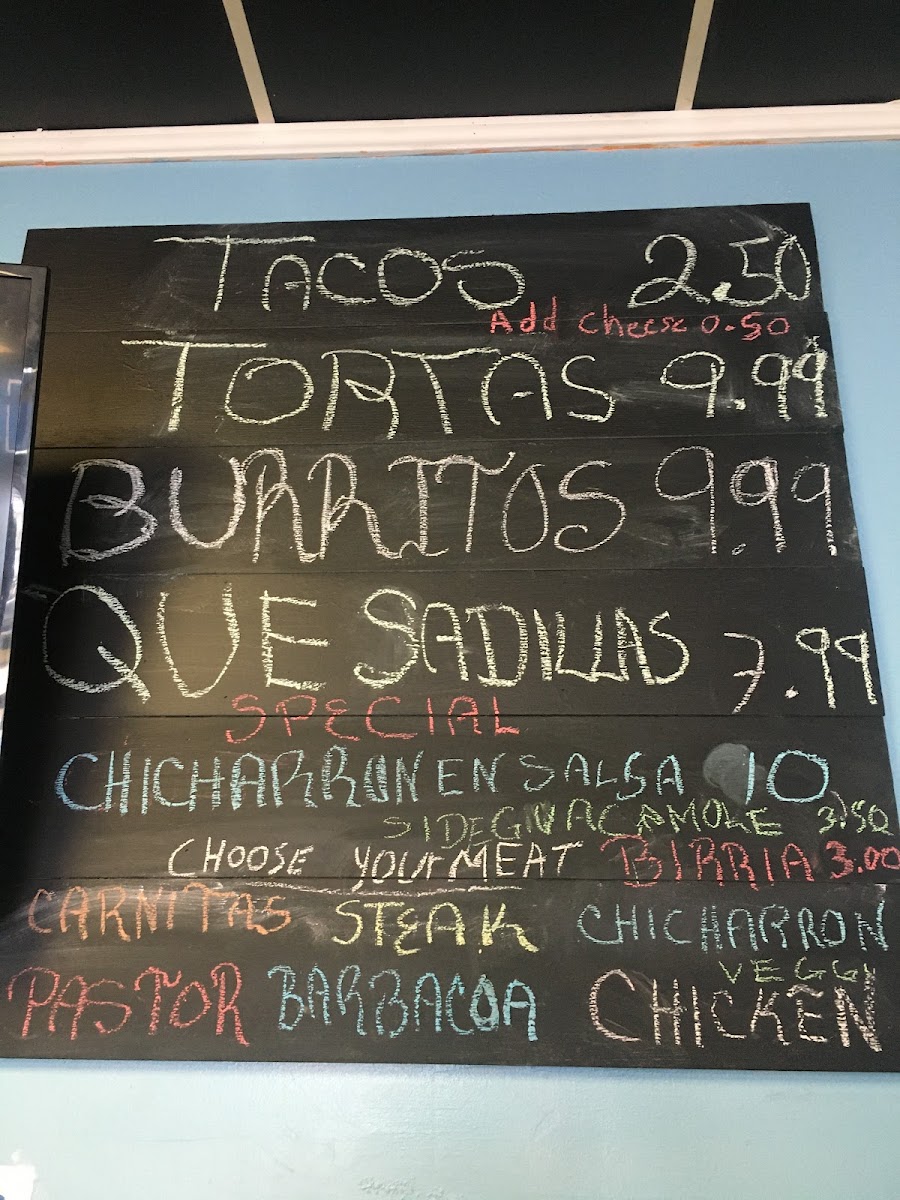 TACOS 2.50
Add cheese 0.50
TORTAS 9.99
BURRITOS 9.99
QUESADILLAS 7.99
SPECIAL
CHICHARRON EN SALSA 10
SIDE GUACAMOLE 3.50
CHOOSE YOUr MEAT BIRRIA 3.00
CARNITAS STEAK CHICHARRON
VEGGI
PASTOR BARBACOA CHICKEN